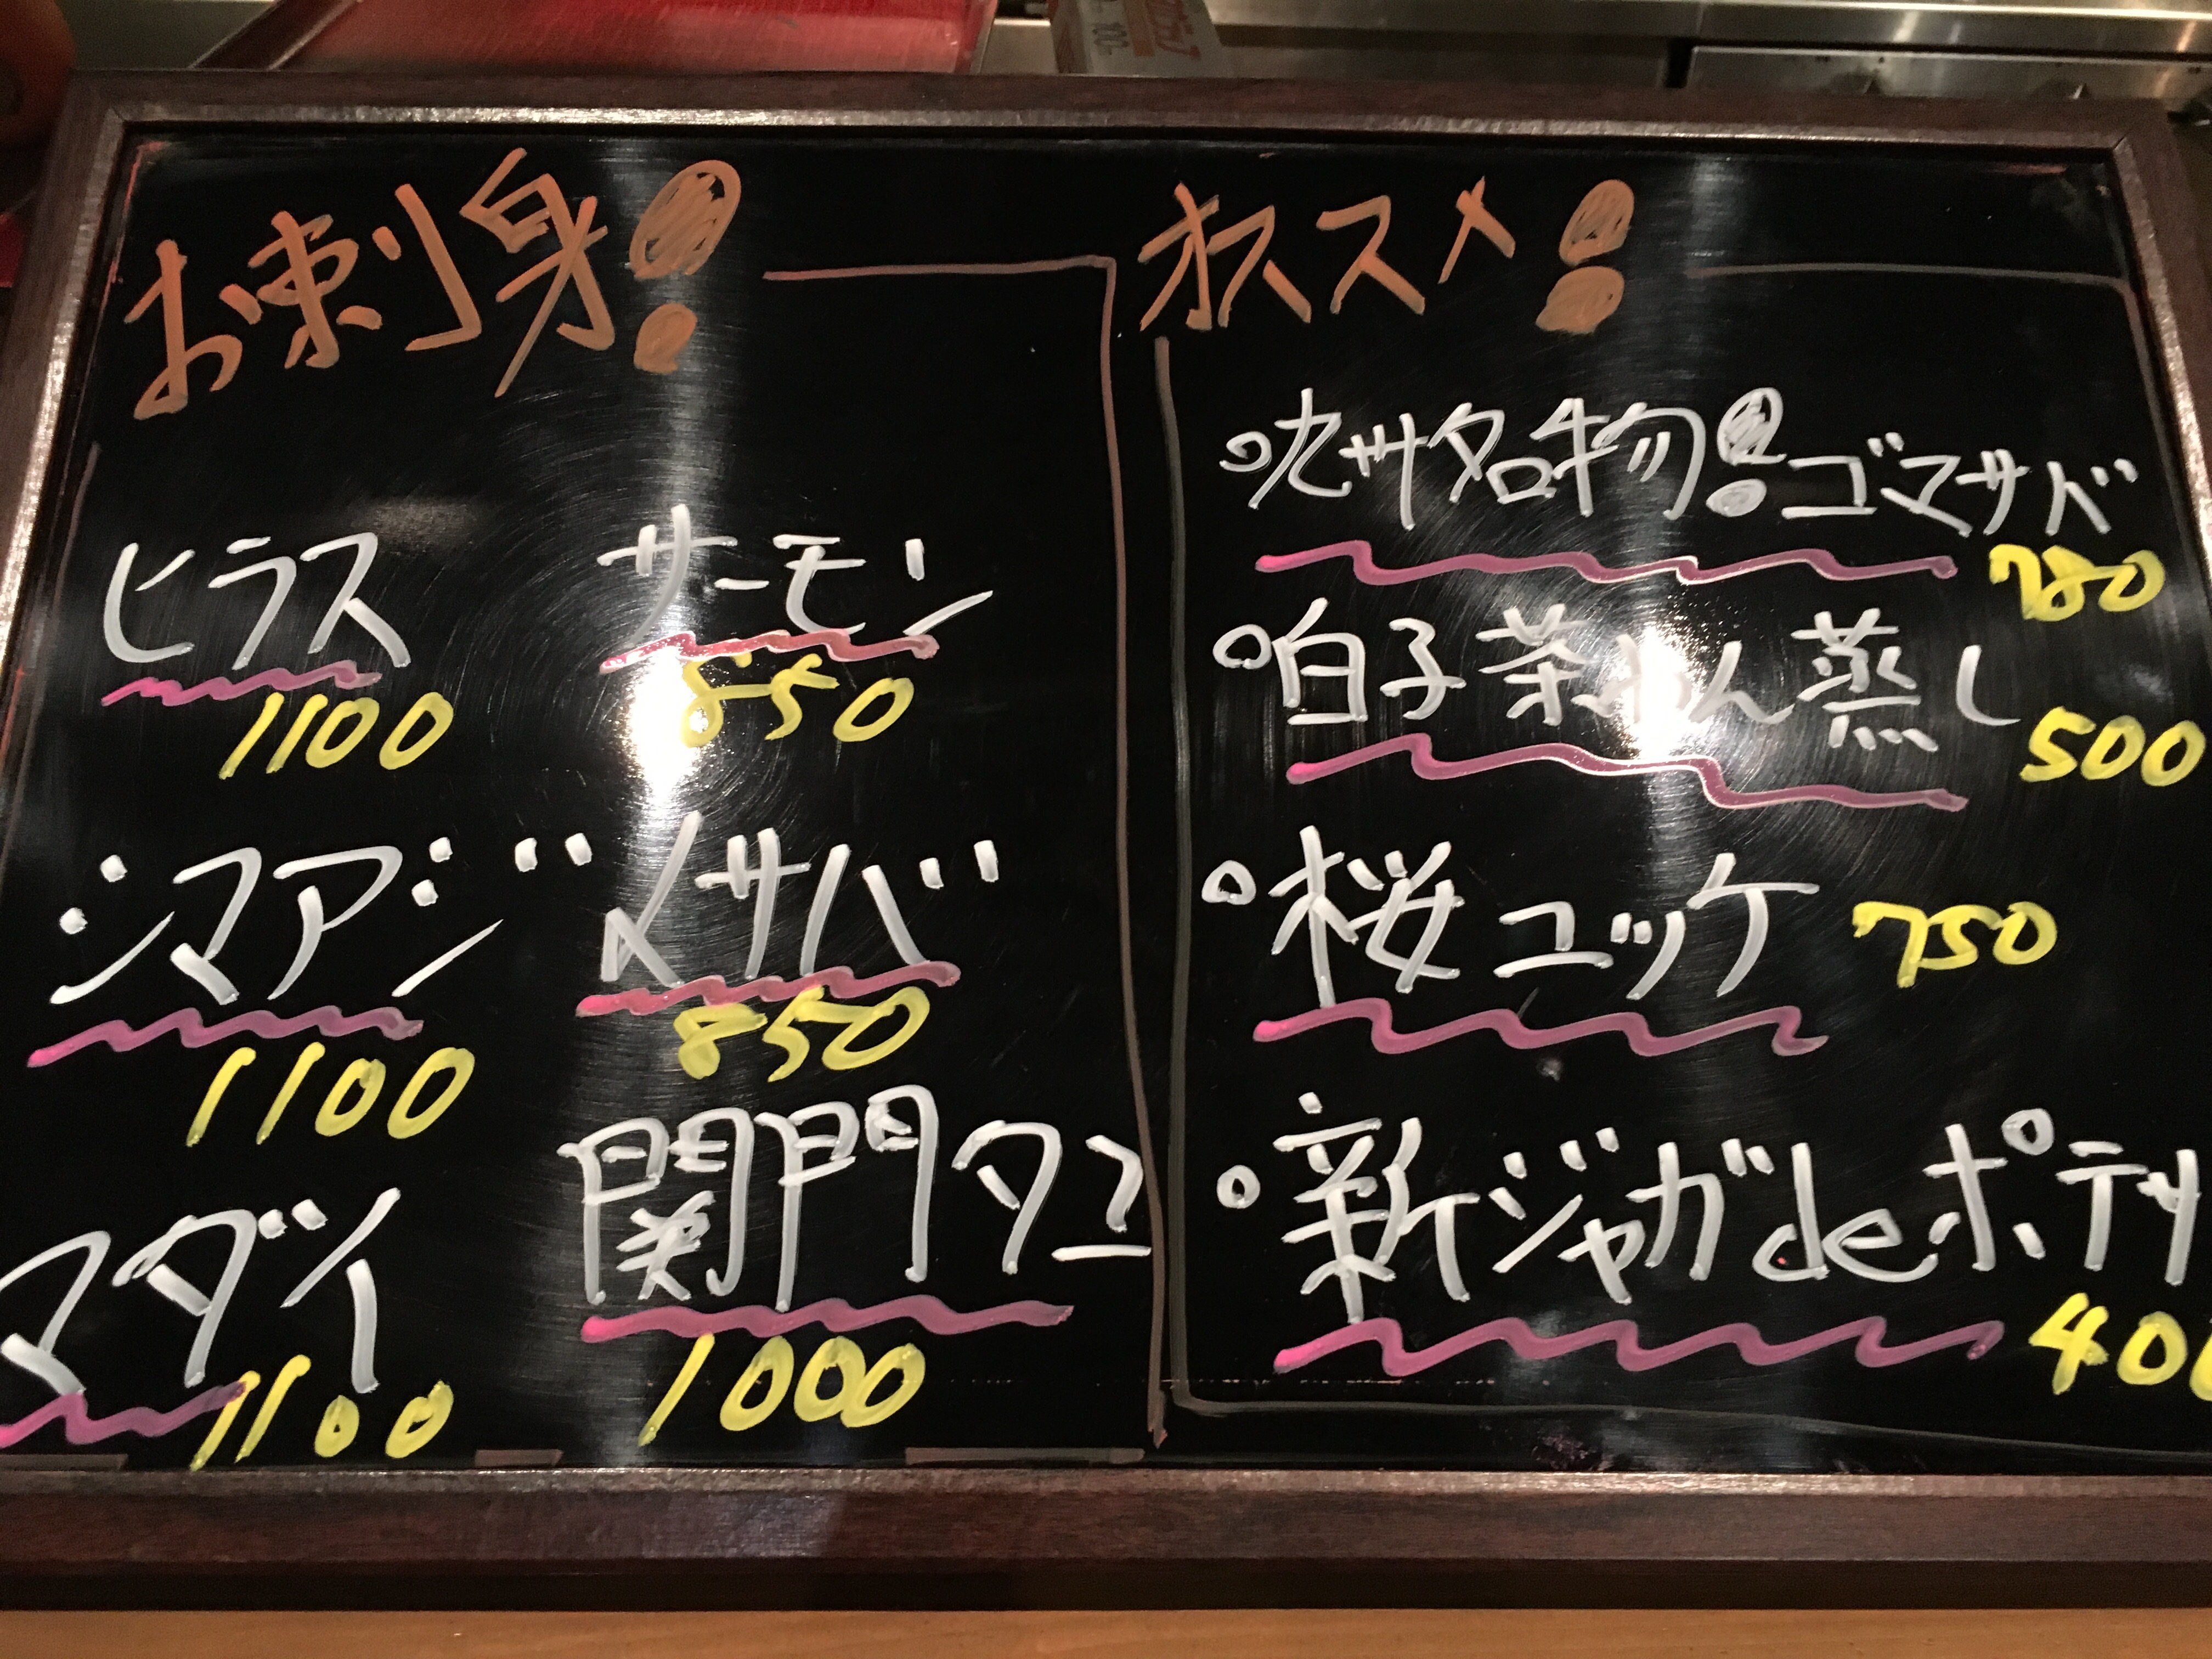 お刺身!
ヒラス
1100
サーモン
850
シマアジ
1100
〆サバ
850
マダイ
1100
関門タコ
1000
オススメ!
九州名物!ゴマサバ
780
白子茶わん蒸し
500
桜ユッケ 750
新ジャガdeポテサ
400